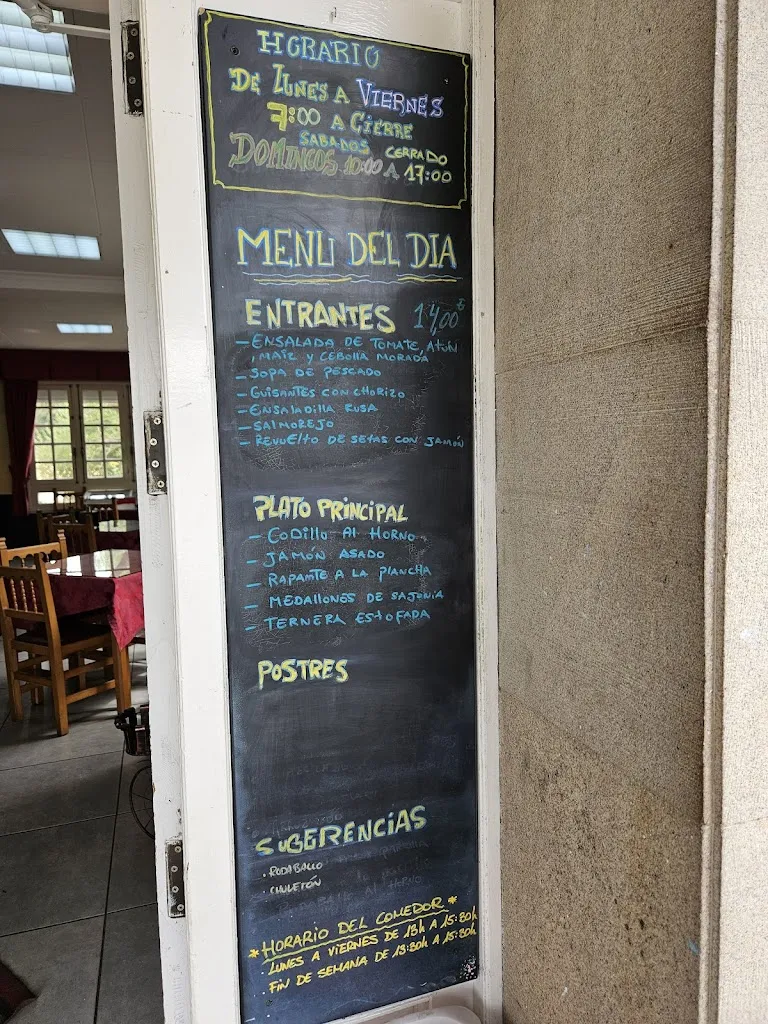 HORARIO
DE LUNES A VIERNES
7:00 A CIERRE
SABADOS CERRADO
DOMINGOS 10:00 A 17:00
MENU DEL DIA
ENTRANTES 14,00€
- ENSALADA DE TOMATE, ATÚN
, MAÍZ Y CEBOLLA MORADA
- SOPA DE PESCADO
- GUISANTES CON CHORIZO
- ENSALADILLA RUSA
- SALMOREJO
- REVUELTO DE SETAS CON JAMÓN
PLATO PRINCIPAL
- CODILLO AL HORNO
- JAMÓN ASADO
- RAPANTE A LA PLANCHA
- MEDALLONES DE SAJONIA
- TERNERA ESTOFADA
POSTRES
SUGERENCIAS
. RODABALLO
. CHULETÓN
*HORARIO DEL COMEDOR*
. LUNES A VIERNES DE 13h A 15:30h
. FIN DE SEMANA DE 13:30h A 15:30h